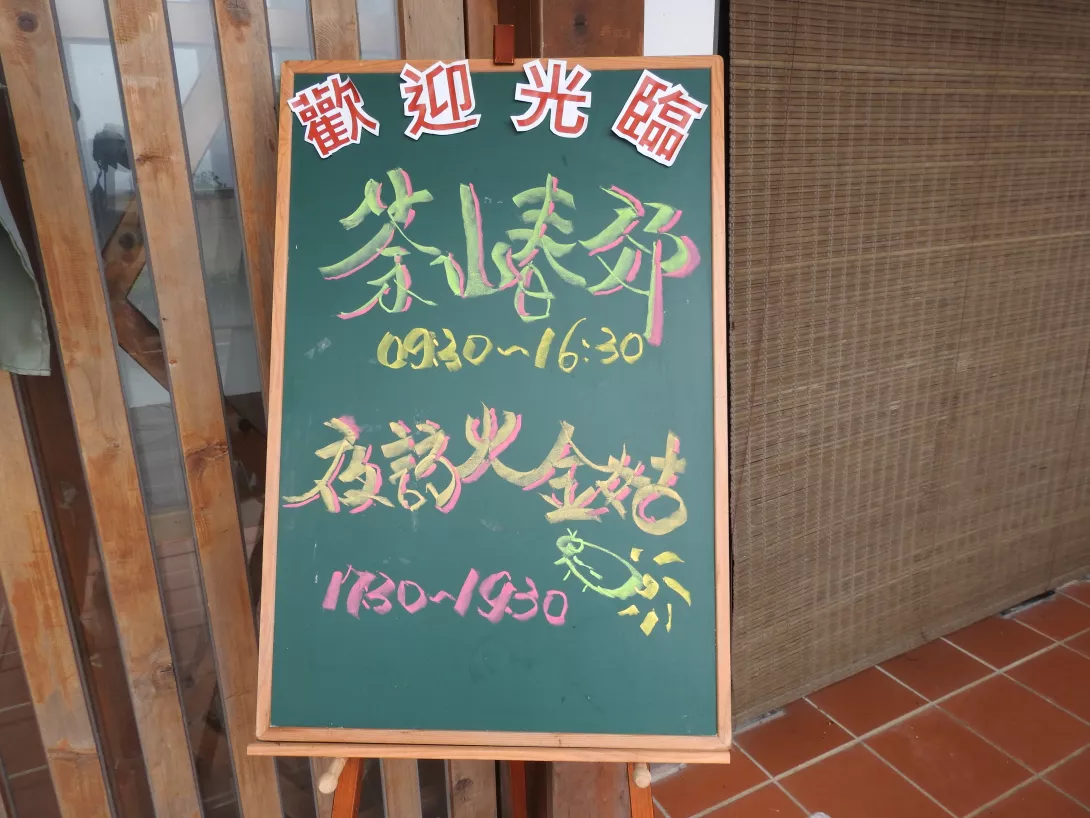 歡迎光臨
茶山春郊
09:30~16:30
夜訪火金姑
17:30~19:30